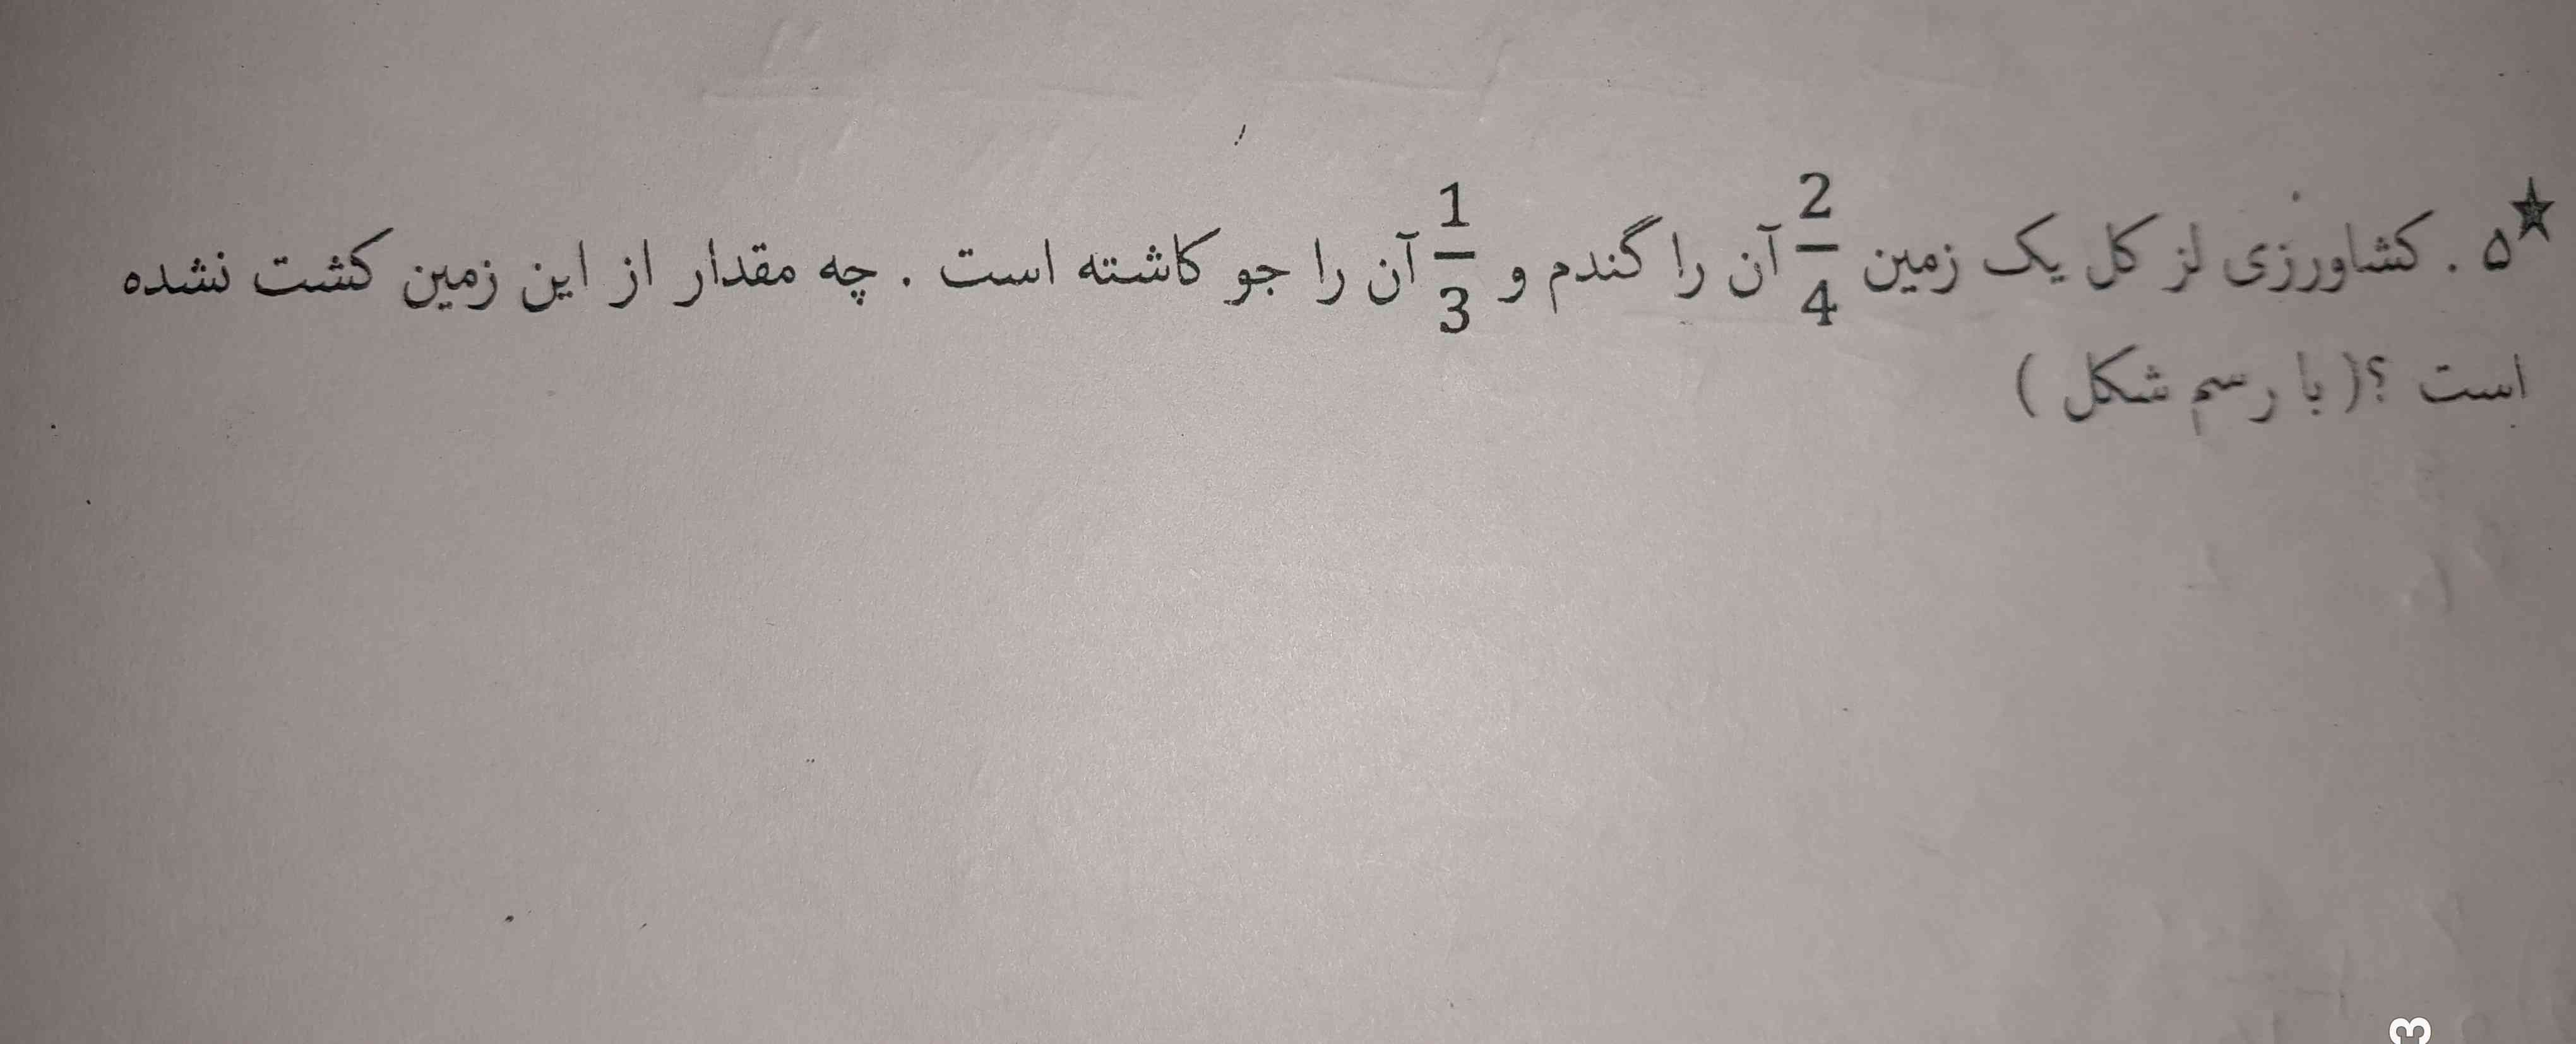 ★۵ . کشاورزی لز کل یک زمین 2/4 آن را گندم و 1/3 آن را جو کاشته است . چه مقدار از این زمین کشت نشده
است ؟( با رسم شکل )
3